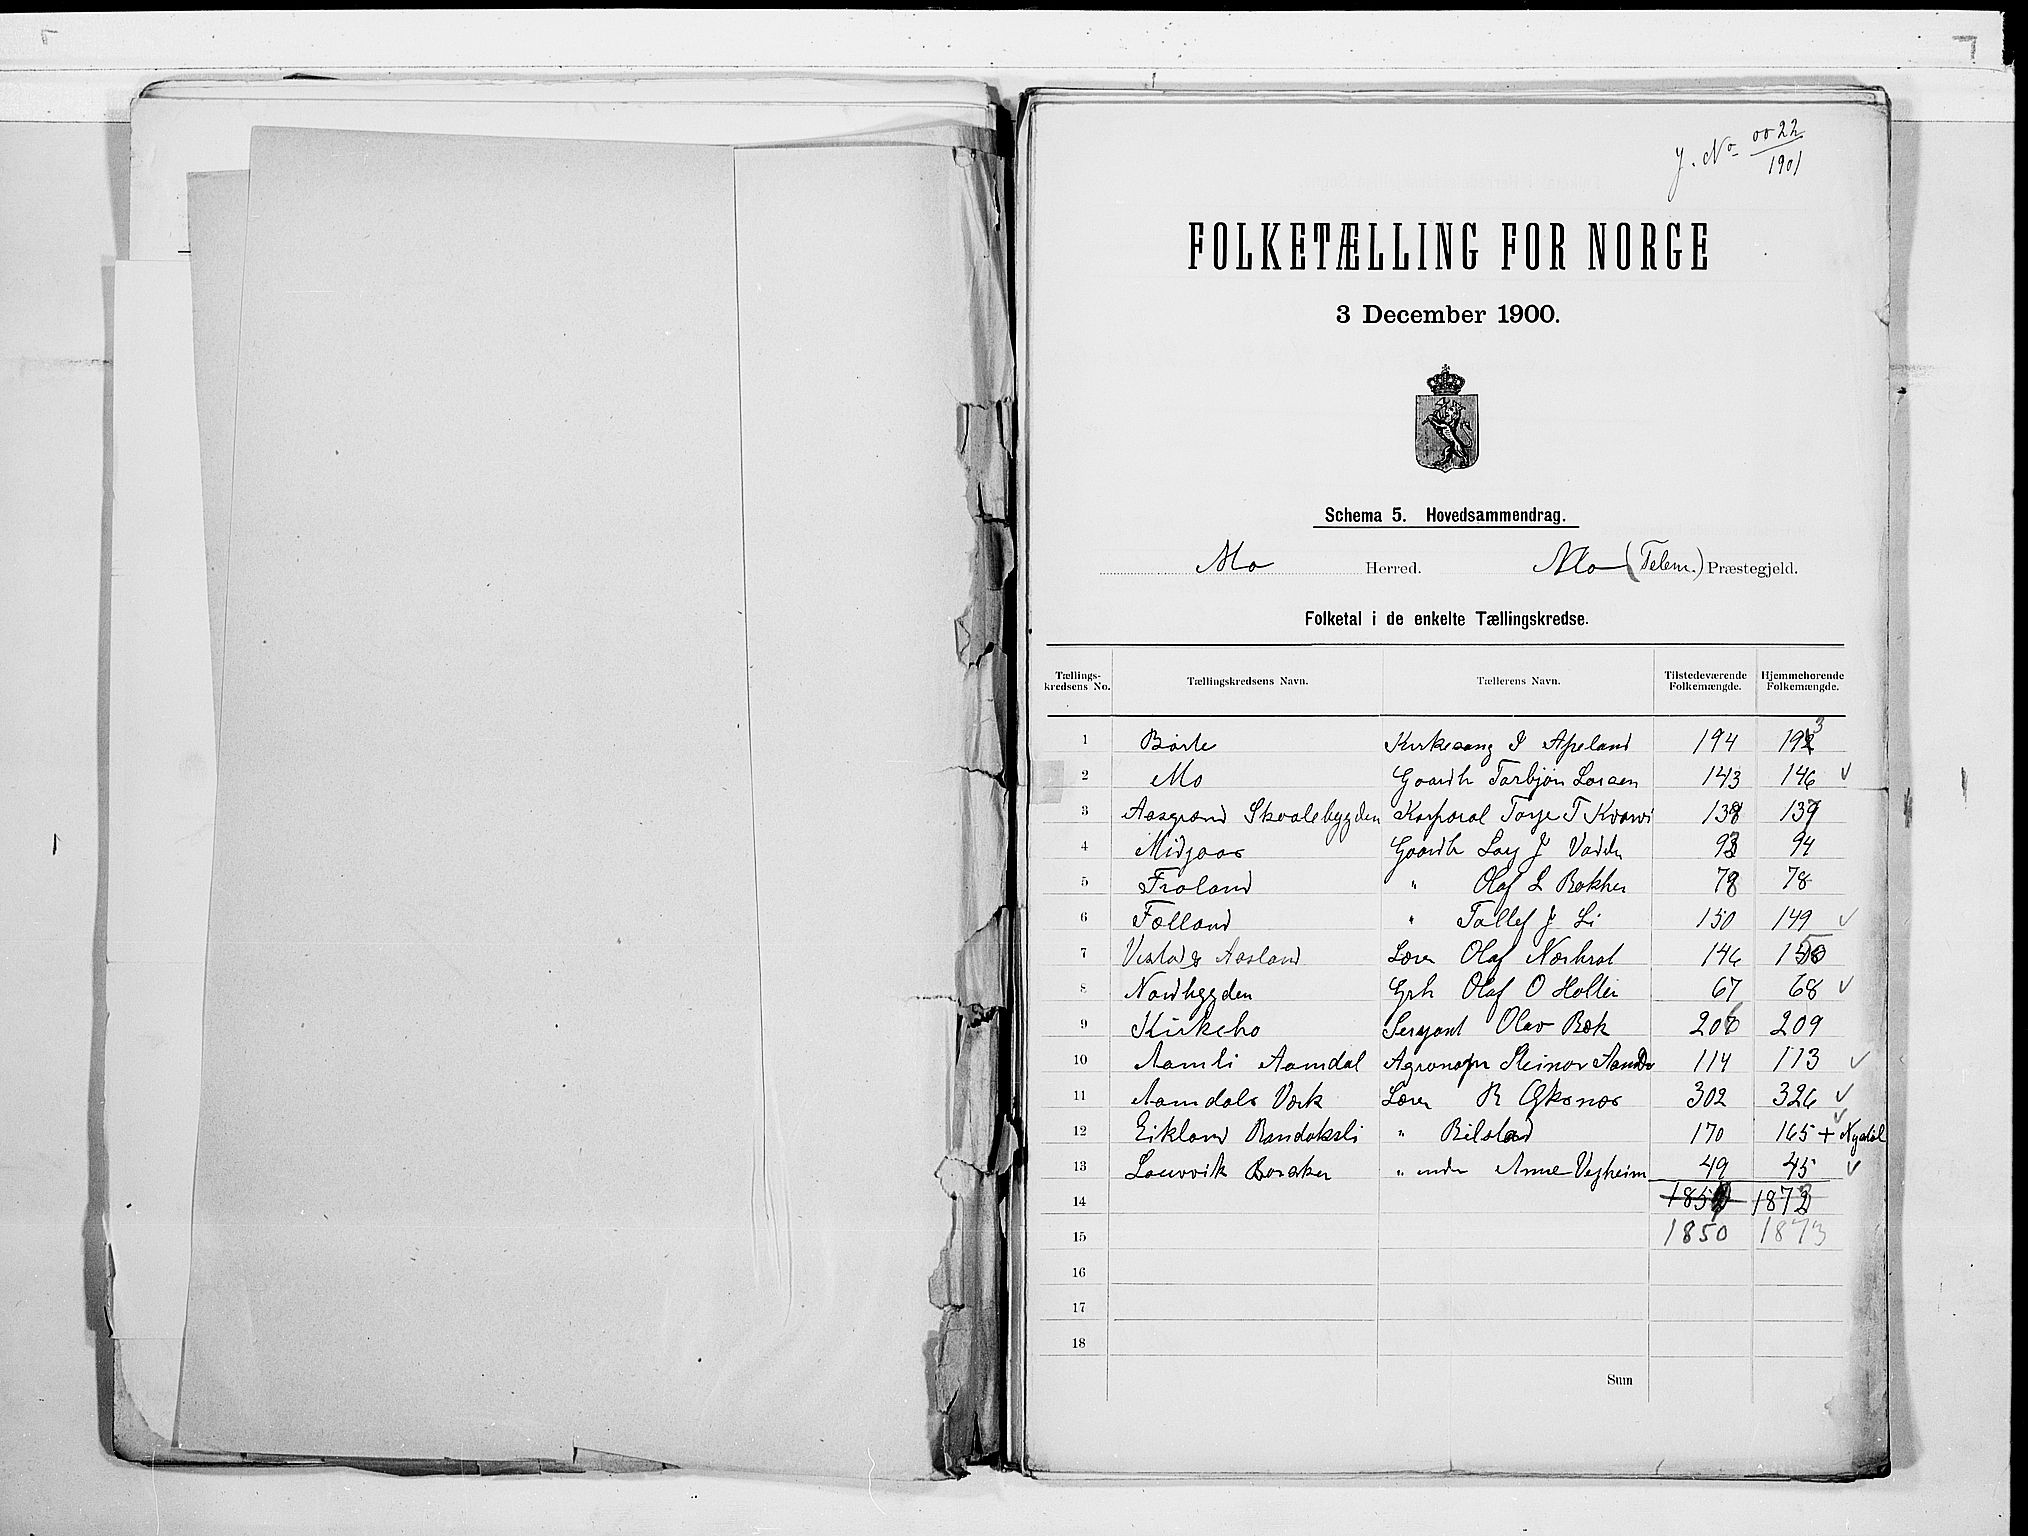 J. No 0022/1901
FOLKETÆLLING FOR NORGE
3 December 1900.
Schema 5. Hovedsammendrag.
Mo Herred. Mo (Telem.) Præstegjeld.
Folketal i de enkelte Tællingskredse.
Tællings-kredsens No. Tællingskredsens Navn. Tællerens Navn. Tilstedeværende Folkemængde. Hjemmehørende Folkemængde.
1 Børte Kirkesang S Apeland 194 193
2 Mo Gaardb Tarbjøn Larsen 143 146 ✓
3 Aasgrend Skvalebygden Korporal Torje T Kvaavi 138 139
4 Midjaas Gaardb J 93 94
5 Froland " Olaf L Bakken 78 78
6 Følland " Tallef J Li 150 149 ✓
7 Vistad & Aasland Lærer Olaf 146 150
8 Nordbygden Grb Olaf O 67 68 ✓
9 Kirkebø Sergant Olav Bæk 206 209
10 Aamli Aamdal Agronom Steinar 114 113 ✓
11 Aamdals Værk Lærer R 302 326 ✓
12 Eikland Bandaksli " Bilstad 170 165 + ✓
13 Lauvvik " Anne Vegheim 49 45 ✓
14 1872
15 1850 1873
16
17
18
Sum